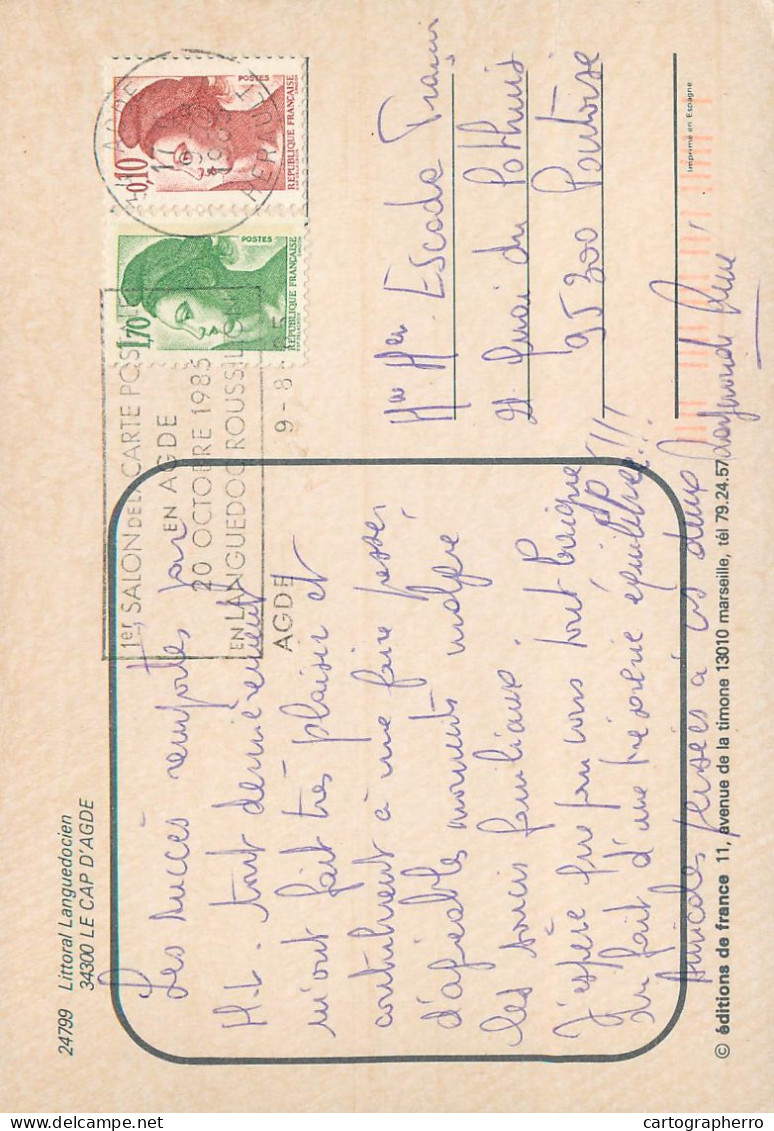 24799 Littoral Languedocien
34300 LE CAP D'AGDE
1er SALON DE LA CARTE POSTALE
EN AGDE
20 OCTOBRE 1985
EN LANGUEDOC ROUSSILLON
AGDE
9-8
AGDE
HERAULT
0,10
POSTES
REPUBLIQUE FRANÇAISE
1,70
POSTES
REPUBLIQUE FRANÇAISE
Les succès remportés par
M.L. tout dernièrement
m'ont fait très plaisir et
contribuent à me faire passer
d'agréables moments malgré
les soucis familiaux.
J'espère que pour vous tout baigne
du fait d'une trésorerie équilibrée!!!
Amicales pensées à vous deux
Raymonde
Escoda
21 Quai du Pothuis
95300 Pontoise
Imprimé en Espagne
© éditions de france 11, avenue de la timone 13010 marseille, tél 79.24.57
cartographerro